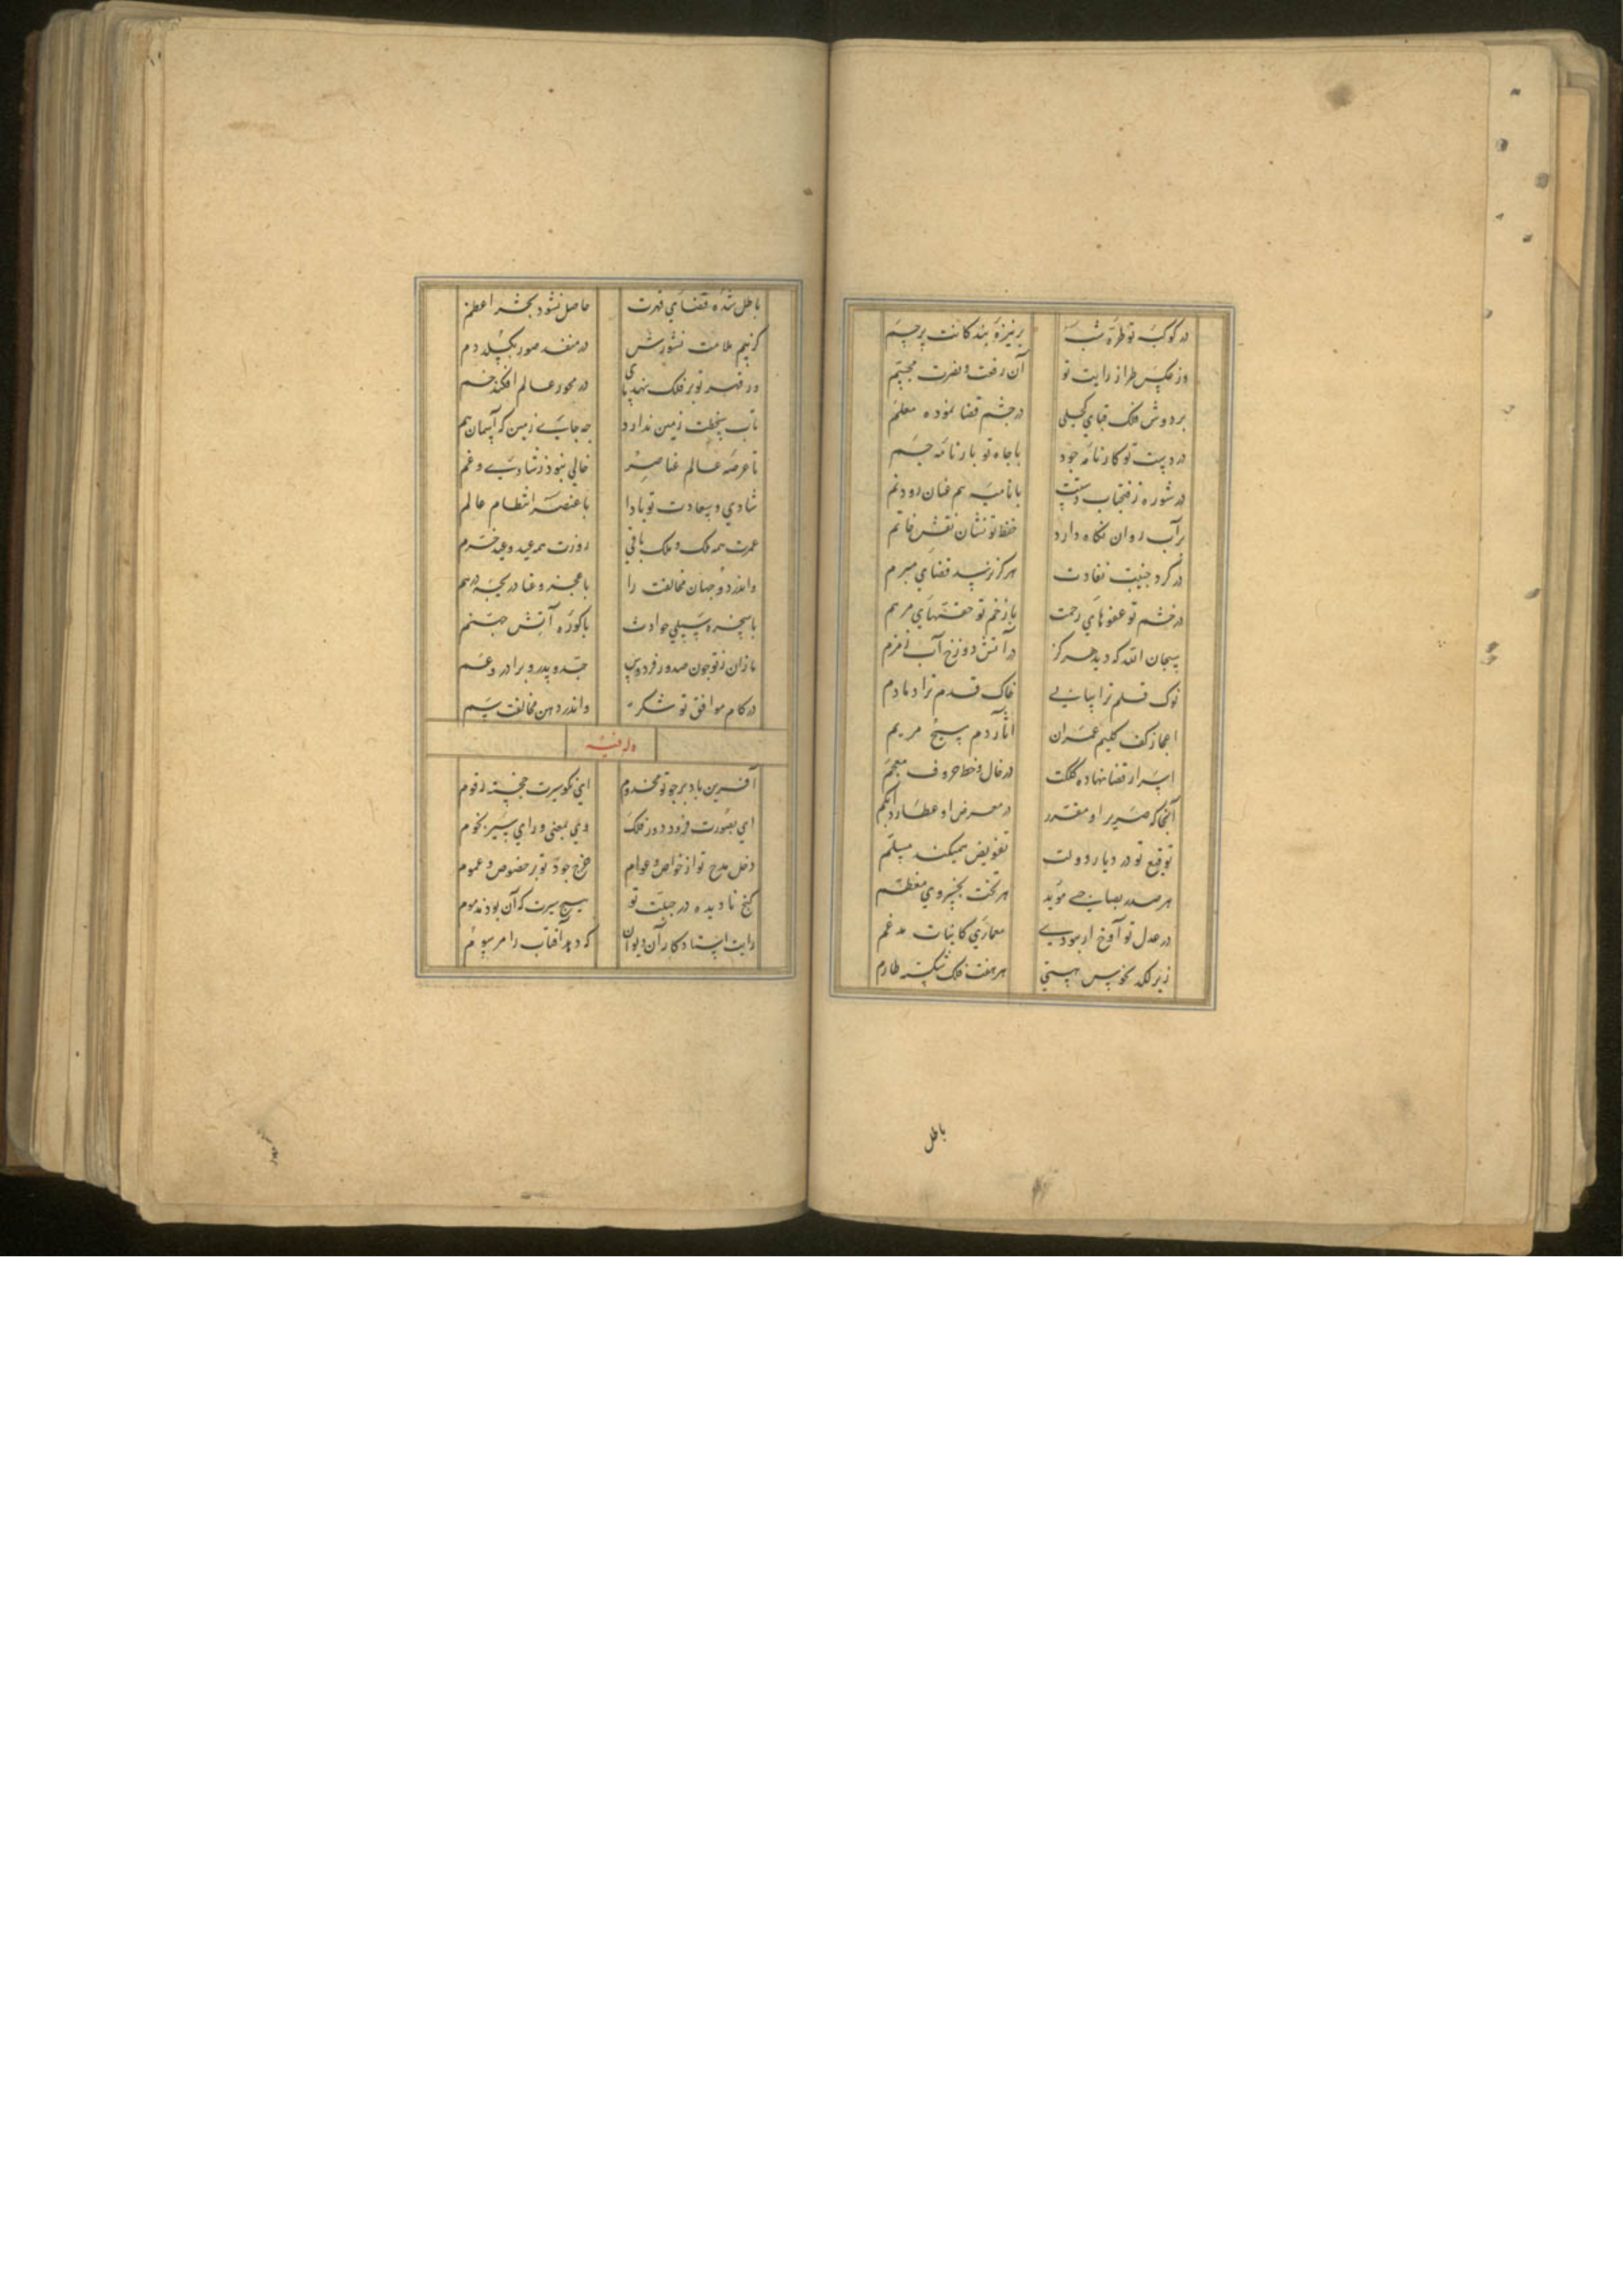 در کوکبه تو طره شب بر نیزه بندکانت پرچم
وز عکس طراز رایت تو آن رفت و نصرت مجسم
بر دوش فلک قبای کحلی در چشم قضا نموده معلم
در دست تو کارنامه جود با جاه تو بارنامه جم
در شوره ز فتحباب دستت با نامیه هم عنان رود نم
بر آب روان نکاه دارد حفظ تو نشان نقش خاتم
در کرد جنیبت نفاذت هرکز نرسد قضای مبرم
در خشم تو عفوهای رحمت با زخم تو حقتهای مرهم
سبحان الله که دید هرکز در آتش دوزخ آب زمزم
نوک قلم ترا پیاپی خاک قدم ترا دمادم
اعجاز کف کلیم عمران آثار دم مسیح مریم
اسرار قضا نهاده کلکت در خال و خط حروف معجم
آنجا که صریر او مقرر در معرض او عطارد ابکم
توقیع تو در دیار دولت تفویض همیکند مسلم
هر صدر بصاحبی مؤید هر تخت بخسروی معظم
در عدل تو آوخ ار نبودی معماری کاینات مدغم
زیر لکد نحوس هستی هر هفت فلک شکسته طارم
باطل
باطل شده قضای قهرت حاصل نشود بحشر اعظم
کر نیم ملامت نشورش در منفذ صور بکسلد دم
ور قهر تو بر فلک نهد پای در محور عالم افکند خم
تاب سخطت زمین ندارد چه جای زمین که آسمان هم
تا عرصه عالم عناصر خالی نبود ز شادی و غم
شادی و سعادت تو بادا با عنصر انتظام عالم
عمرت همه ملک و ملک باقی روزت همه عید و عید خرم
واندر دو جهان مخالفت را با عجز و عنا دریچه درهم
با سخره سیلی حوادث با کوره آتش جهنم
نازان ز تو چون صدور فردوس جد و پدر و برادر و عم
در کام موافق تو شکر واندر دهن مخالفت سم
وله فیه
آفرین باد بر چو تو مخدوم ای نکو سیرت خجسته رقوم
ای بصورت فرود دور فلک وی بمعنی ورای سیر نجوم
دخل مدح تو از خواص و عوام خرج جود تو بر خصوص و عموم
کنج نادیده در جبلت تو هیچ سیرت که آن بود مذموم
رایت استاد کار آن دیوان که دهد آفتاب را مرسوم